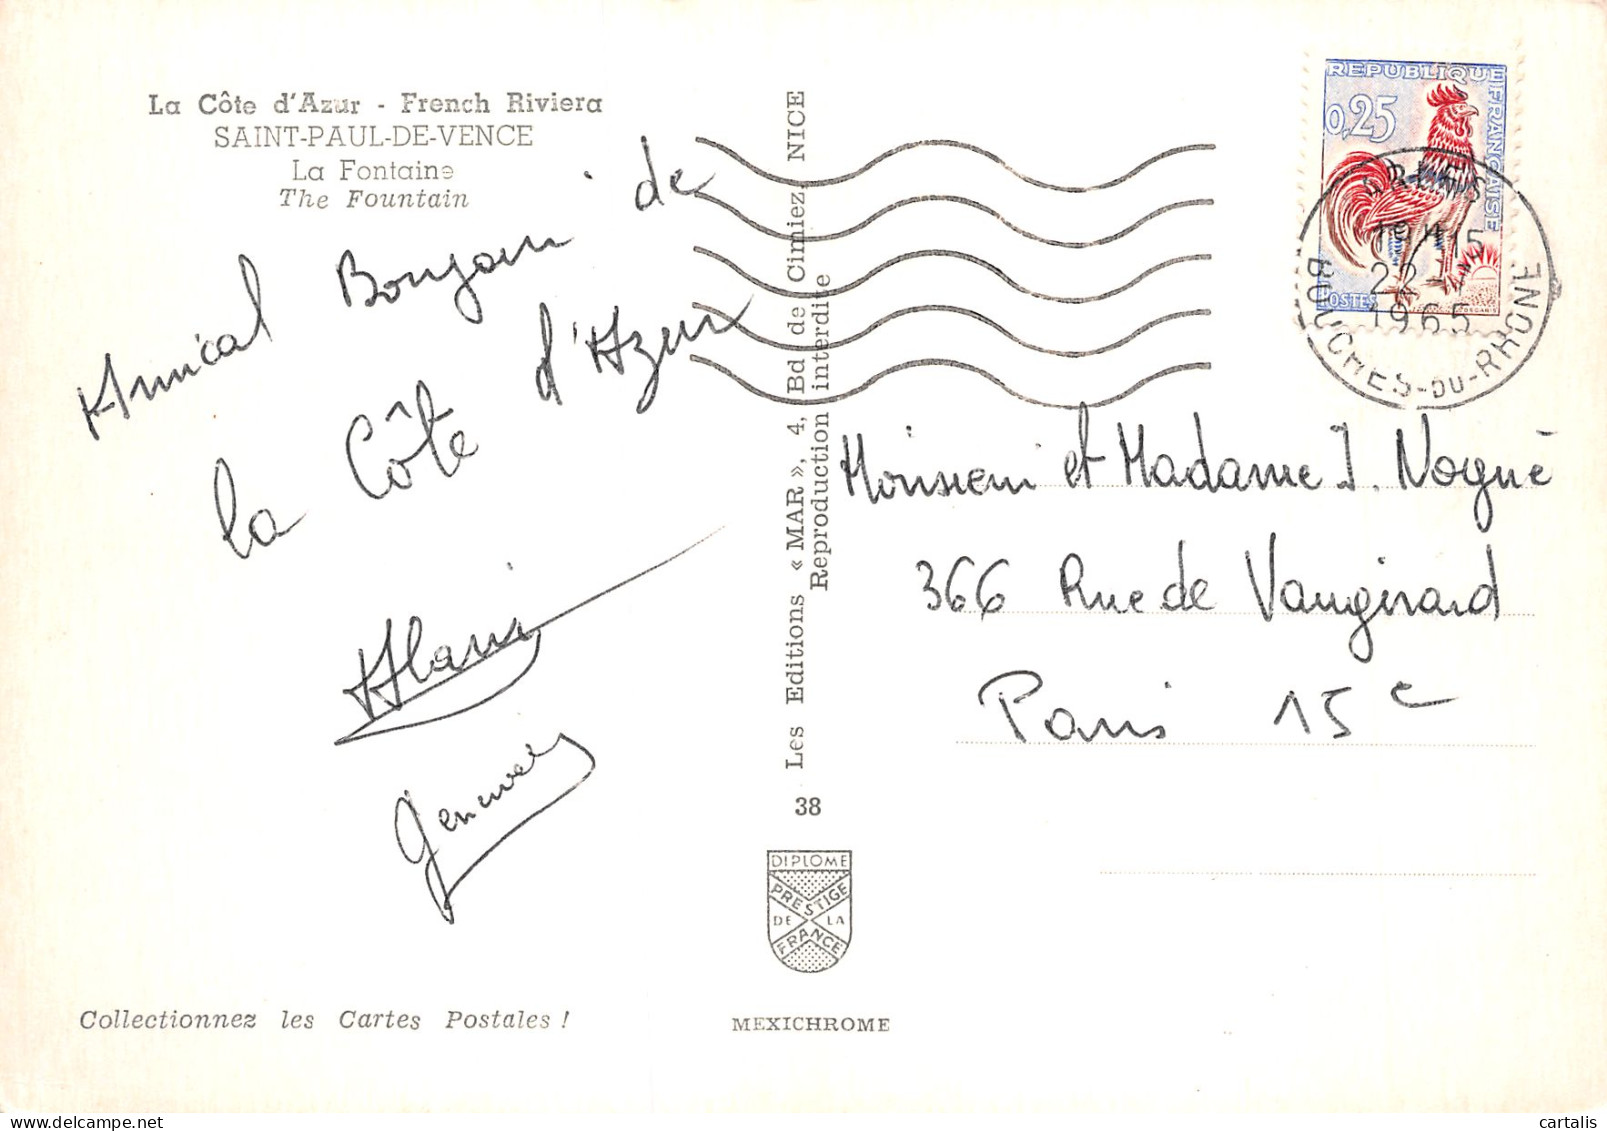 La Côte d'Azur - French Riviera
SAINT-PAUL-DE-VENCE
La Fontaine
The Fountain
Amical Bonjour de
la Côte d'Azur
Alain
Collectionnez les Cartes Postales !
Les Editions « MAR », 4, Bd de Cimiez, NICE
Reproduction interdite
38
DIPLOME
PRESTIGE
DE LA
FRANCE
MEXICHROME
REPUBLIQUE FRANÇAISE
0,25
POSTES
DECARIS
ARLES
22
1965
BOUCHES-DU-RHONE
Monsieur et Madame J. Nogué
366 Rue de Vaugirard
Paris 15e
cartalis